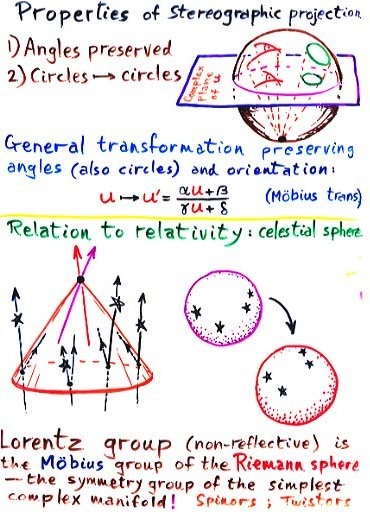 Properties of stereographic projection
1) Angles preserved
2) Circles ↦ circles
Complex
plane
of u
General transformation preserving
angles (also circles) and orientation:
u ↦ u' = αu+β / γu+δ (Möbius trans)
Relation to relativity: celestial sphere
Lorentz group (non-reflective) is
the Möbius group of the Riemann sphere
— the symmetry group of the simplest
complex manifold! Spinors; Twistors